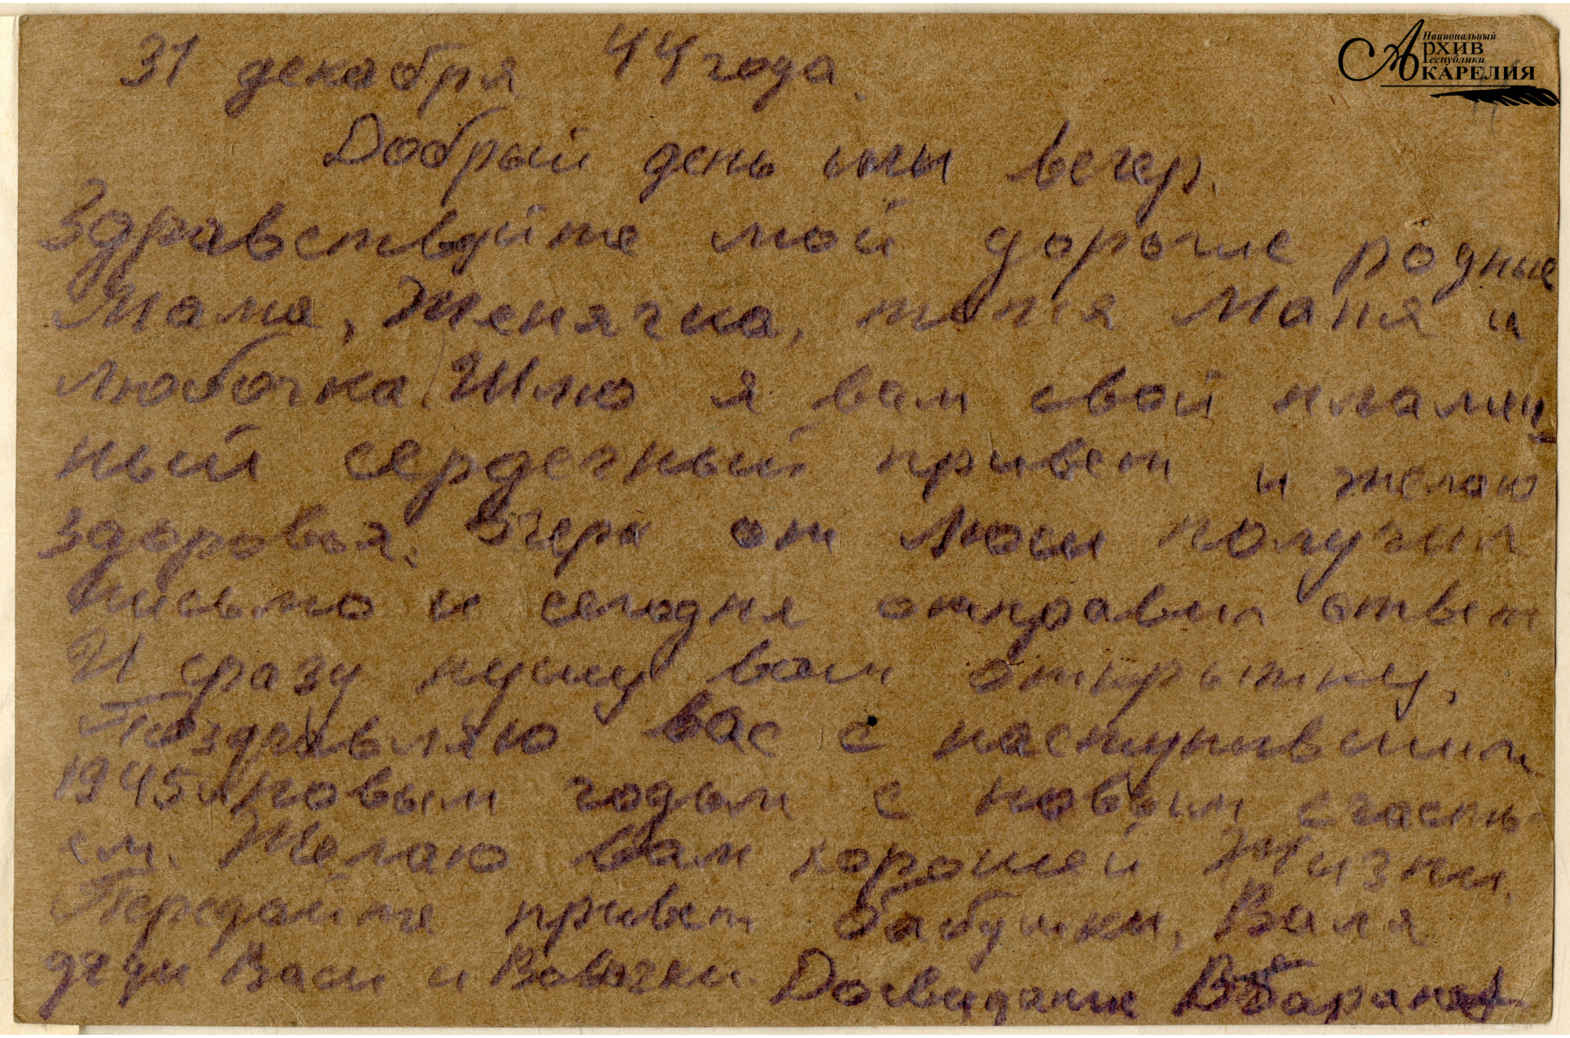 Национальный
АРХИВ
Республики
КАРЕЛИЯ
31 декабря 44 года.
Добрый день или вечер.
Здравствуйте мои дорогие родные
Мама, Женячка, тётя Маня и
Любочка. Шлю я вам свой пламен
ный сердечный привет и желаю
здоровья. Вчера от Люси получил
письмо и сегодня отправил ответ
И сразу пушу вам открытку.
Поздравляю вас с наступившим
1945 новым годом с новым счасть
ем. Желаю вам хорошей жизни.
Передайте привет бабушки, Валя
дяди Васи и Вовочки. Досвидание В Баранов